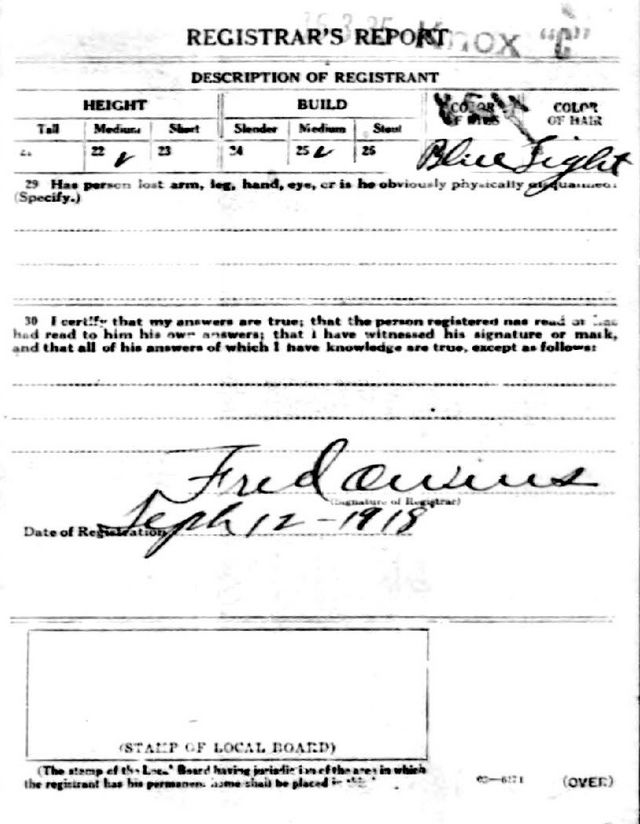 REGISTRAR'S REPORT Knox "C"
DESCRIPTION OF REGISTRANT
HEIGHT BUILD COLOR OF EYES COLOR OF HAIR
Tall Medium Short Slender Medium Stout
21 22 ✓ 23 24 25 ✓ 26 Blue Light
29 Has person lost arm, leg, hand, eye, or is he obviously physically disqualified?
(Specify.)
30 I certify that my answers are true; that the person registered has read or has
had read to him his own answers; that I have witnessed his signature or mark,
and that all of his answers of which I have knowledge are true, except as follows:
Fred Owens
(Signature of Registrar)
Date of Registration Sept 12-1918
(STAMP OF LOCAL BOARD)
(The stamp of the Local Board having jurisdiction of the area in which
the registrant has his permanent home shall be placed in this
03-6171 (OVER)